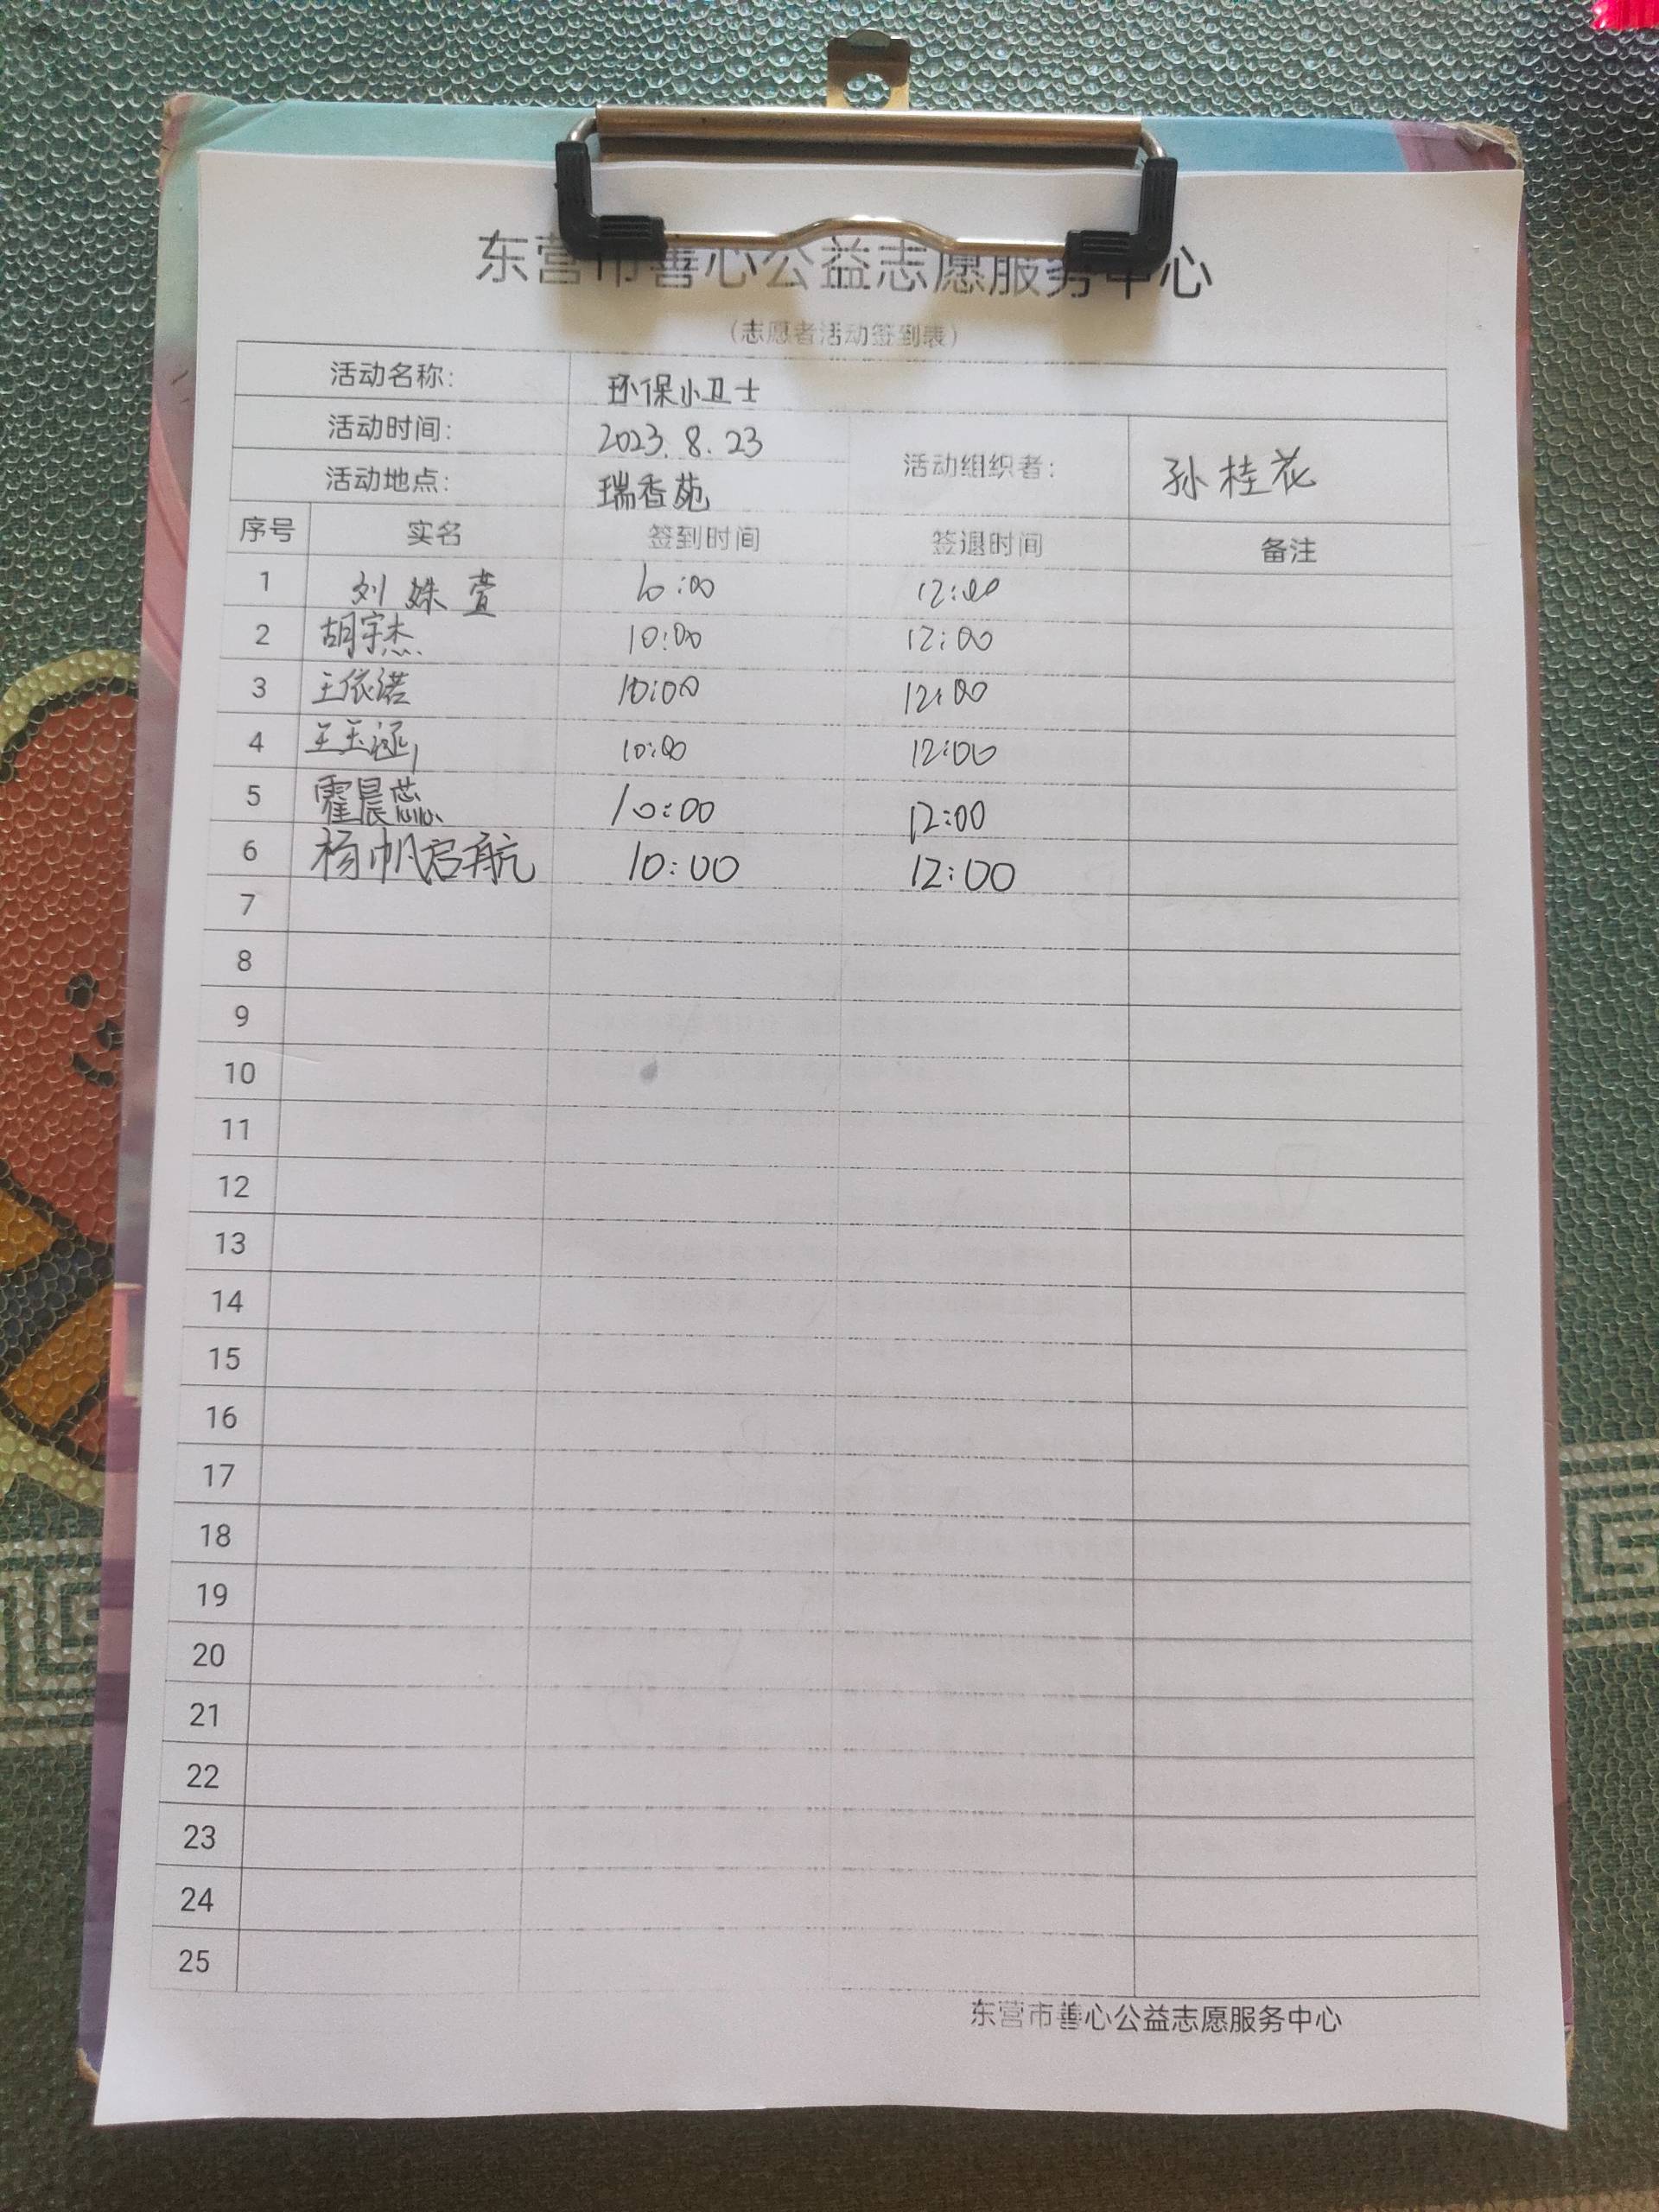 东营市善心公益志愿服务中心
(志愿者活动签到表)
活动名称: 环保小卫士
活动时间: 2023.8.23
活动组织者: 孙桂花
活动地点: 瑞香苑
序号 实名 签到时间 签退时间 备注
1 刘姝萱 10:00 12:00
2 胡宇杰 10:00 12:00
3 王依诺 10:00 12:00
4 王玉涵 10:00 12:00
5 霍晨蕊 10:00 12:00
6 杨帆启航 10:00 12:00
7
8
9
10
11
12
13
14
15
16
17
18
19
20
21
22
23
24
25
东营市善心公益志愿服务中心